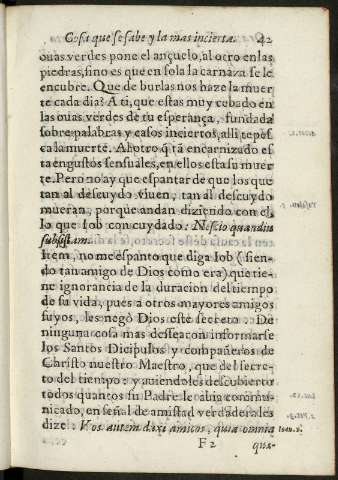 Cosa que se sabe y la mas incierta. 42
ouas verdes pone el ançuelo, al otro en las
piedras, sino es que en sola la carnaza se le
encubre. Que de burlas nos haze la muer
te cada dia? A ti, que estas muy cebado en
las ouas verdes de tu esperança, fundada
sobre palabras y casos inciertos, alli te pes
ca la muerte. Al otro q̃ tã encarnizado es
ta en gustos sensuales, en ellos esta su muer
te. Pero no ay que espantar de que los que
tan al descuydo viuen, tan al descuydo
mueran, porque andan diziendo con el,
lo que Iob con cuydado: Nescio quandiu
subsistam.
Item, no me espanto que diga Iob (sien-
do tan amigo de Dios como era) que tie-
ne ignorancia de la duracion del tiempo
de su vida, pues a otros mayores amigos
suyos, les negò Dios este secreto. De
ninguna cosa mas dessearon informarse
los Santos Dicipulos y compañeros de
Christo nuestro Maestro, que del secre-
to del tiempo: y auiendoles descubierto
todo quanto su Padre le cabia comu-
nicado, en señal de amistad verdadera les
dize: Vos autem dixi amicos, quia omnia
Ioan.
F 2
quæ-